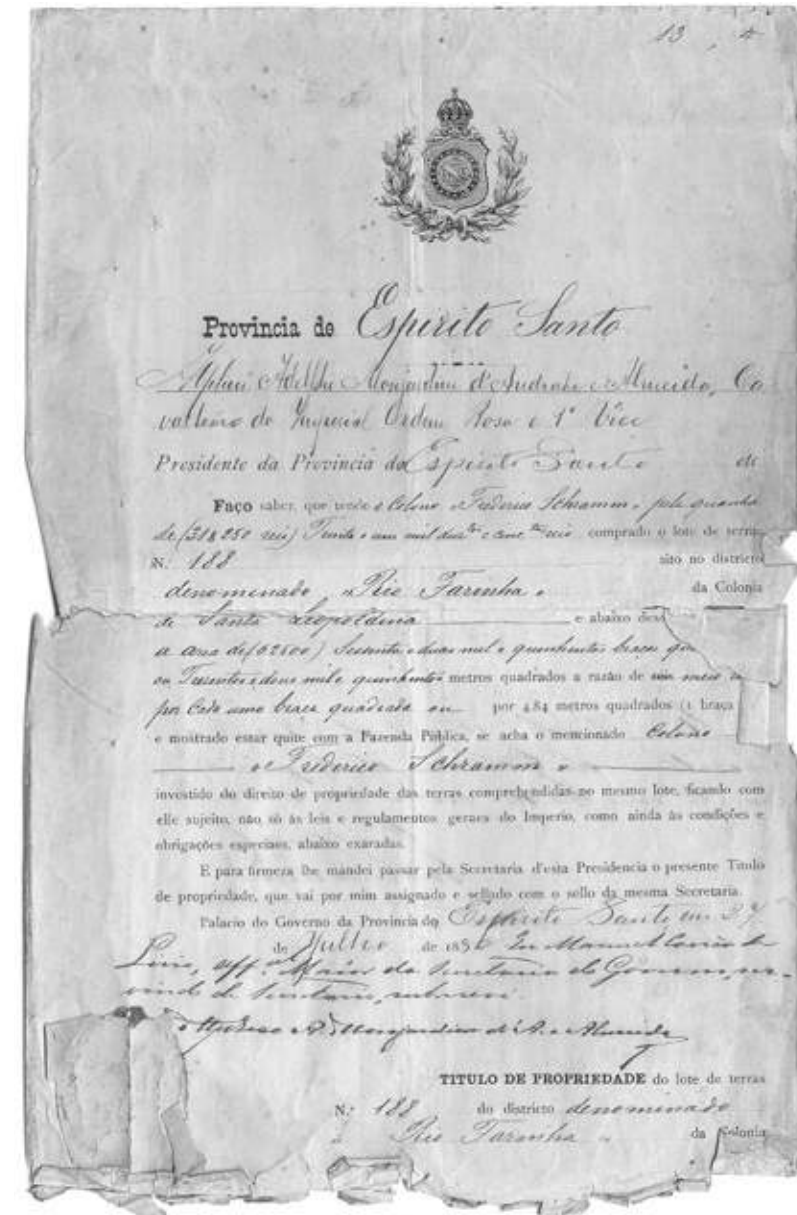 13
Provincia do Espirito Santo
Alpheu Adelpho Monjardim d'Andrade e Almeida, Ca
valleiro da Imperial Ordem Rosa e 1º Vice
Presidente da Provincia do Espirito Santo de
Faço saber, que tendo o Colono Frederico Schramm pela quantia
de (31$250 reis) Trinta e um mil duz.tos e cinc.ta reis comprado o lote de terras
N.º 188 sito no districto
denominado Rio Farinha da Colonia
de Santa Leopoldina e abaixo des
a area de (62500) Sessenta e duas mil e quinhentas braças qua
ou Trezentos e doze mil e quinhentos metros quadrados a razão de um meio
por cada uma braça quadrada ou por 4.84 metros quadrados (1 braça
e mostrado estar quite com a Fazenda Publica, se acha o mencionado Colono
Frederico Schramm
investido do direito de propriedade das terras comprehendidas no mesmo lote, ficando com
elle sujeito, não só ás leis e regulamentos geraes do Imperio, como ainda ás condições e
obrigações especiaes, abaixo exaradas.
E para firmeza lhe mandei passar pela Secretaria d'esta Presidencia o presente Titulo
de propriedade, que vai por mim assignado e sellado com o sello da mesma Secretaria.
Palacio do Governo da Provincia do Espirito Santo em 27
de Julho de 18 Eu Manuel Corrêa de
Lirio, off.al Maior da Secretaria do Governo, ser-
vindo de Secretario, subscrevi.
Alpheo A. Monjardim d'A. e Almeida
TITULO DE PROPRIEDADE do lote de terras
N.º 188 do districto denominado
Rio Farinha da Colonia